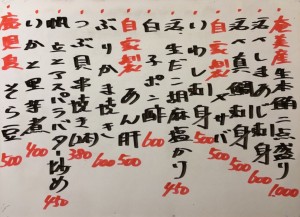 奄美産生本鮪二点盛り 1.000
天然しまあじ刺身 600
天然真鯛刺身 500
自家製〆サバ 500
いわし刺身 500
天然生だこ胡麻塩かり 450
白子ポン酢 600
自家製あん肝 500
ぶりかま焼き 600
つぶ貝串焼き(2本) 380
帆立とアスパラバター炒め 450
いかと里芋煮 400
鹿児島そら豆 500